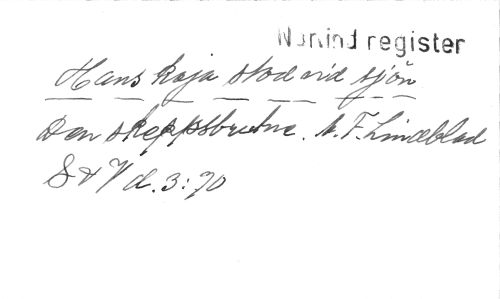 Nurind register
Hans koja stod vid sjön
Den skeppsbrutne. A. F. Lindeblad
S & V d. 3:70